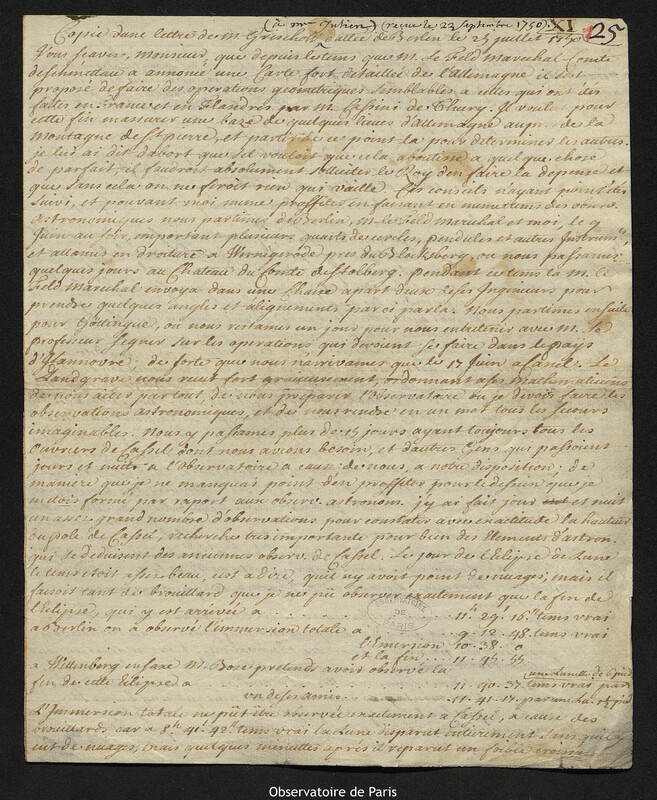 (a mr. Julien) (recue le 23 septembre 1750) XI 25
Copie d'une lettre de M. Grischott dattée de Berlin le 25 juillet 1750
Vous scavez, monsieur, que depuis le tems que M. le feld Marechal Comte
de Schmettau a annoncé une Carte fort detaillée de l'Allemagne il s'est
proposé de faire des operations geometriques semblables a celles qui ont été
faites en France et en Flandres par M. Cassini de Thury. Il vouloit pour
cette fin mesurer une baze de quelques lieues d'allemagne aupr. de la
Montagne de St pierre, et partir de ce point la pour determiner les autres.
je lui ai dit d'abort que s'il vouloit que cela aboutisse a quelque chose
de parfait, il faudroit absolument solliciter le Roy d'en faire la depense et
que sans cela on ne feroit rien qui vaille. Ces conseils n'ayant point été
suivi, et pouvant moi meme proffiter en faisant en meme tems des observ.
Astronomiques nous partimes de Berlin, M. le feld Marechal et moi, le 9
Juin au soir, emportant plusieurs quarts de cercles, pendules et autres Instrum.ts
et allames en droiture a Wernigerode pres du Blocksberg, ou nous passames
quelques jours au Chateau du Comte de Stolberg. pendant ce tems la M. le
feld Marechal envoya dans une Chaise apart deux de ses Ingenieurs pour
prendre quelques angles et alignements par ci par la. Nous partimes ensuite
pour Göttingue, ou nous restames un jour pour nous entretenir avec M. le
professeur Segner sur les operations qui devoient se faire dans le pays
d'Hannovre; de sorte que nous n'arrivames que le 17 Juin a Cassel. Le
Landgrave nous recut fort gracieusement, ordonnant a ses mathematiciens
de nous aider par tout, de nous preparer l'observatoire ou je devois faire des
observations astronomiques, et de nous rendre en un mot tous les secours
imaginables. Nous y passames plus de 15 jours ayant toujours tous les
Ouvriers de Cassel dont nous avions besoin, et d'autres Gens qui passoient
jours et nuits a l'Observatoire a cause de nous, a notre disposition; de
maniere que je ne manquai point d'en proffiter pour le dessein que je
m'etois formé par raport aux observ. astronom. j'y ai fait jour et nuit
un assez grand nombre d'observations pour constater avec exactitude la hauteur
du pole de Cassel, recherche tres importante pour bien des Elements d'astron.
qui se deduisent des anciennes observ. de Cassel. Le jour de l'Eclipse de Lune
le tems etoit assez beau, c'est a dire, qu'il n'y avoit point de nuages; mais il
faisoit tant de brouillard que je ne pus observer exactement que la fin de
l'Eclipse, qui y est arrivée a . . . . 11h 29' 16" tems vrai
a Berlin on a observé l'immersion totale a . . . 9. 12. 48. tems vrai
l'Emersion 10. 38. 0
et la fin . . . 11. 45. 55
a Wittenberg en Saxe M. Bose pretend avoir observé la
fin de cette Eclipse a . . . . 11. 40. 37. tems vrai par une Lunette de 6 pieds
un de ses amis . . . . 11. 41. 17. par une
L'Immersion totale ne put être observée exactement a Cassel, a cause des
brouillards car a 8h. 41'. 42". tems vrai la Lune disparut entierement sans qu'il y
eut de nuages, mais quelques minuttes apres il reparut un foible
OBSERVATOIRE DE PARIS
Observatoire de Paris